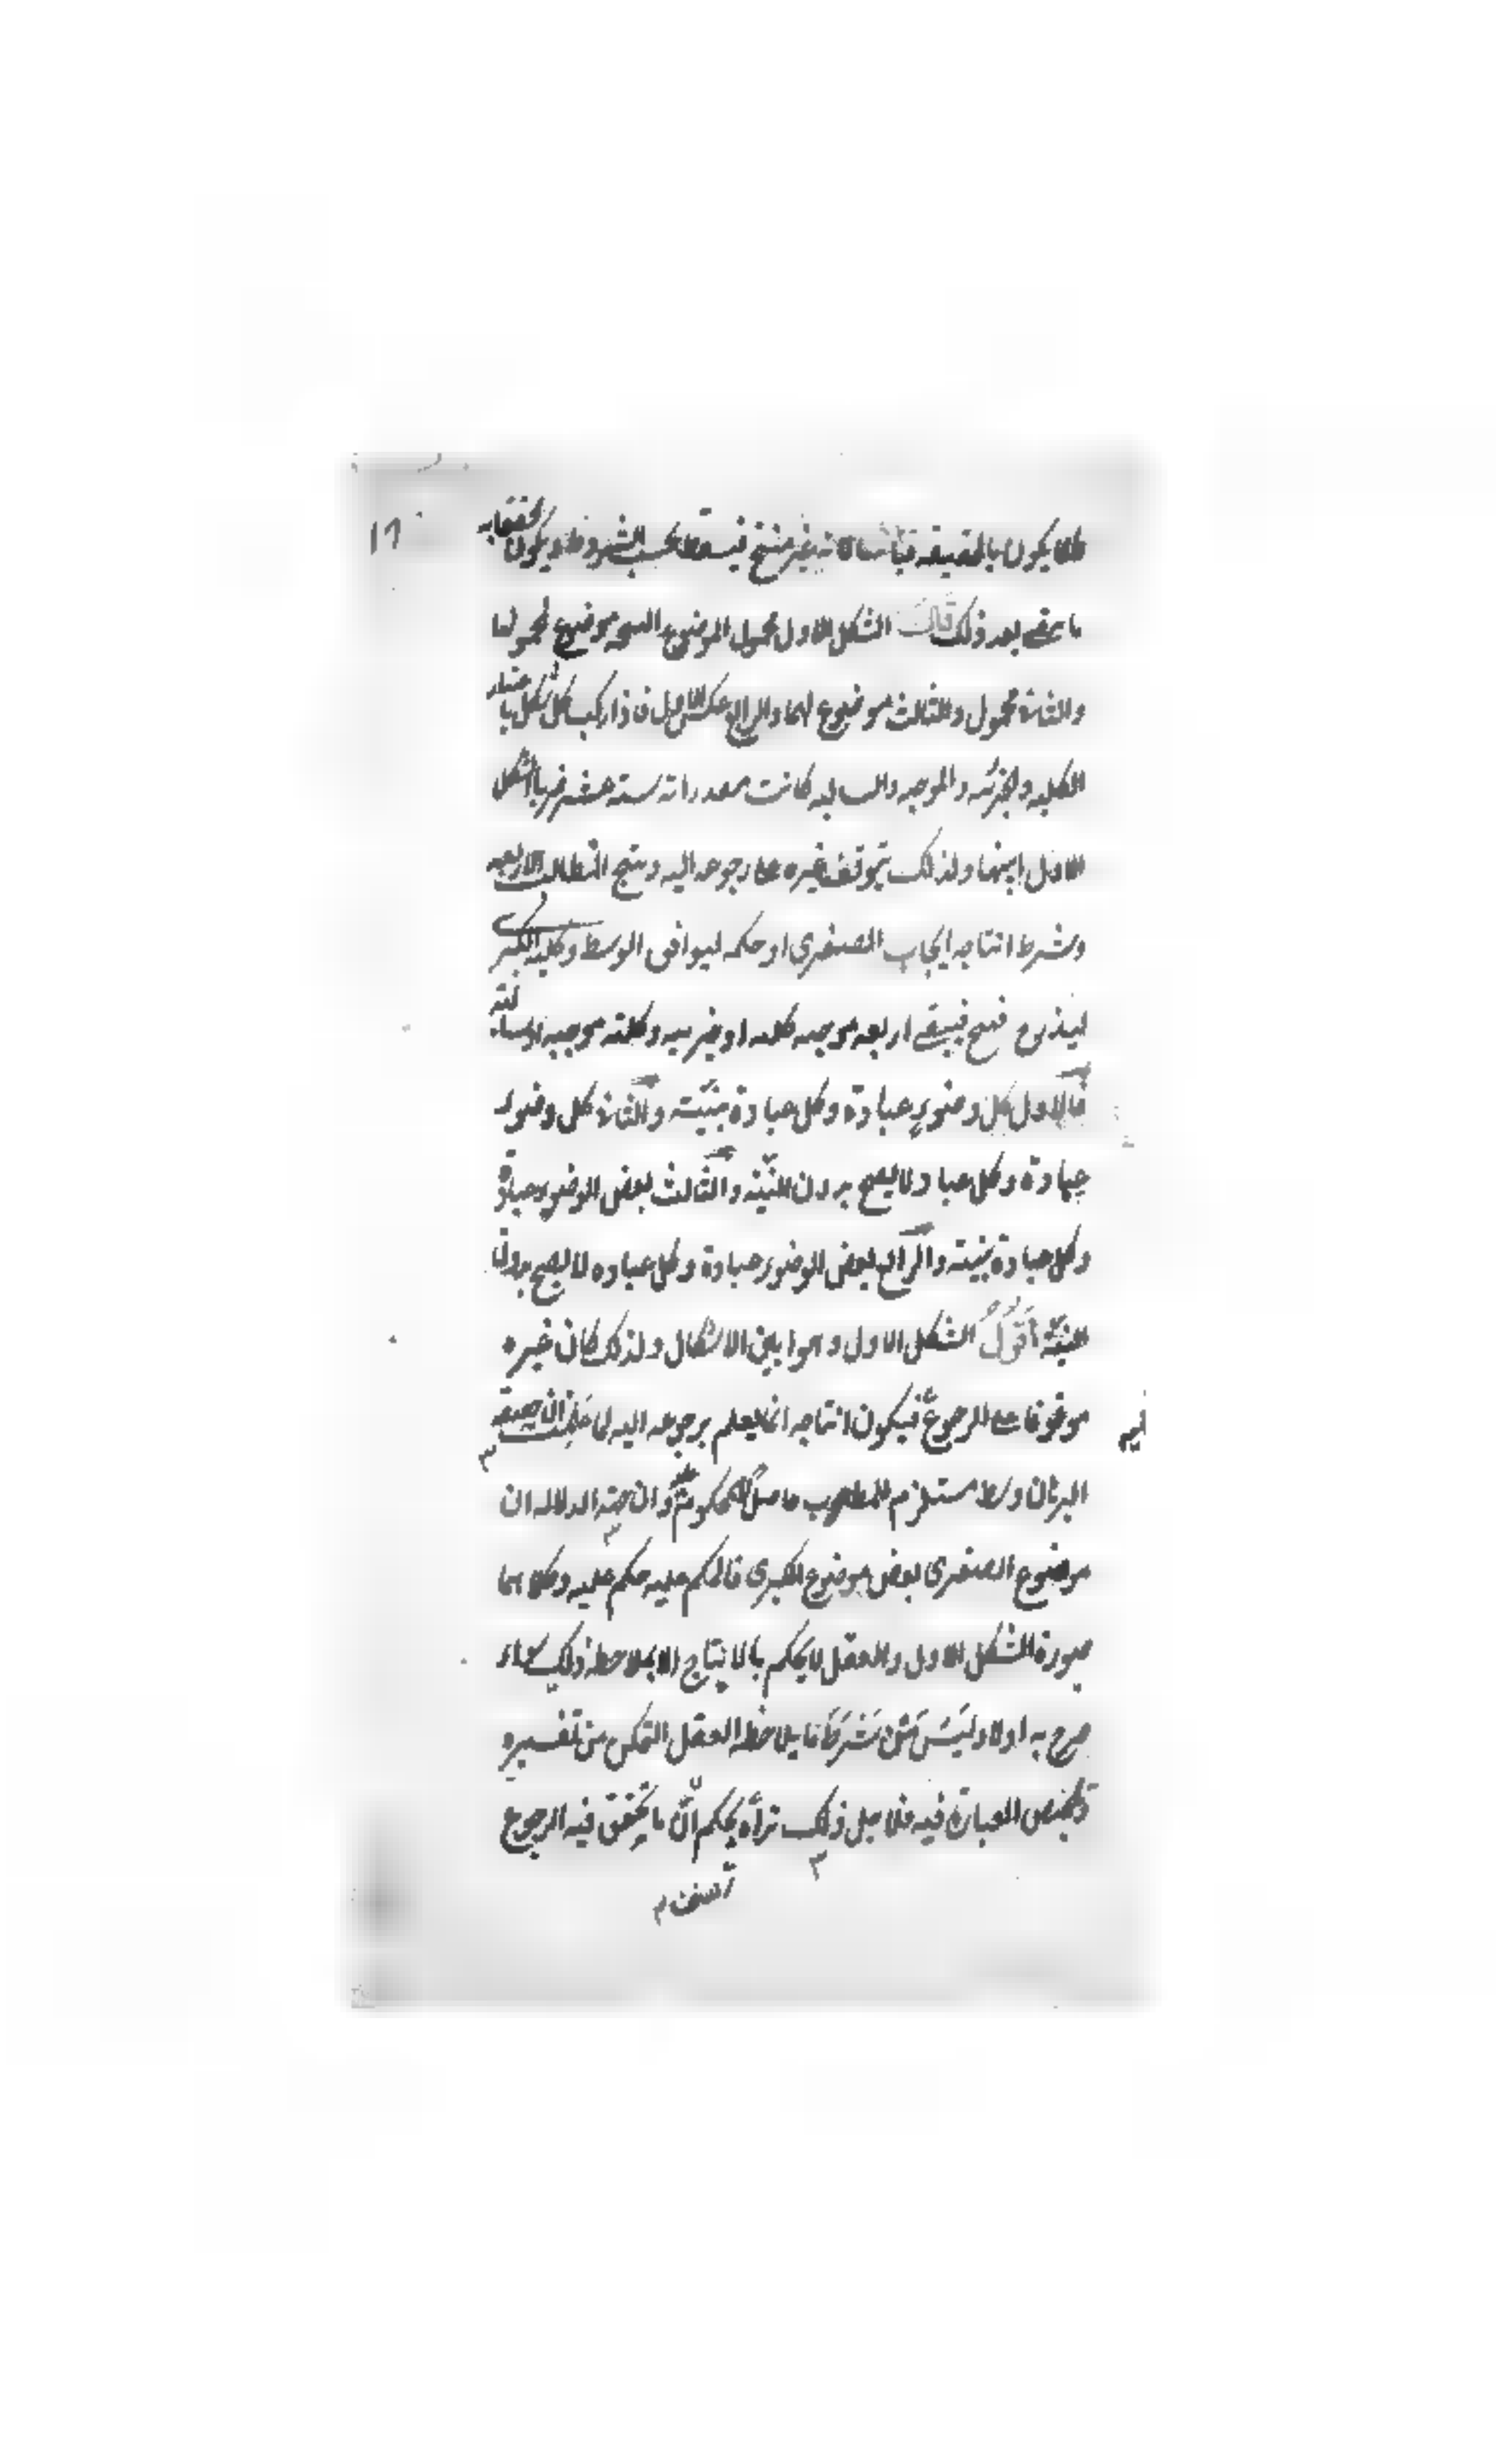 فلا يكون بالحقيقة قياسا لانه غير منتج فيسقط بحسب الشروط ويكون محققا به
ما بقي بعد ذلك قال الشكل الاول محمول الموضوع النتيجه موضوع لمحمولها
والثاني محمول والثالث موضوع لهما والرابع عكس الاول فاذا ركب كل شكل باعتبار
الكليه والجزئيه والموجبه والسالبه كانت مقدراته سته عشر ضربا الشكل
الاول ابينها ولذلك يتوقف غيره على رجوعه اليه وينتج المطالب الاربعه
وشرط انتاجه ايجاب الصغرى او حكمه ليوافق الوسط وكليه الكبرى
ليندرج فينتج فيبقى اربعه موجبه كليه او جزييه وكليته موجبه او سالبته
فالاول كل وضوء عبادة وكل عبادة بنيته والثاني كل وضوء
عبادة وكل عبادة لا يصح بدون النيته والثالث بعض الوضوء عبادة
وكل عبادة بنيته والرابع بعض الوضوء عبادة وكل عباده لا يصح بدون
النية اقول الشكل الاول وهو ابين الاشكال ولذلك كان غيره
موقوفا على الرجوع فيكون انتاجه انما يعلم برجوعه اليه لما علمت ان حقيقه
البرهان وسط مستلزم للمطلوب حاصل للمحكوم عليه وان جهة الدلاله ان
موضوع الصغرى بعض موضوع الكبرى فالحكم عليه حكم عليه وكلاهما
صورة الشكل الاول والعقل لا يحكم بالانتاج الا بملاحظه ذلك سواء
صرح به اولا وليس من شرط ما يلاحظه العقل التمكن من تفسيره
وتلخيص العبارة فيه فلاجل ذلك تراه يحكم ان ما تحقق فيه الرجوع